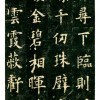 尋下臨則
千仞珠璧
金碧相暉
雲霞蔽虧